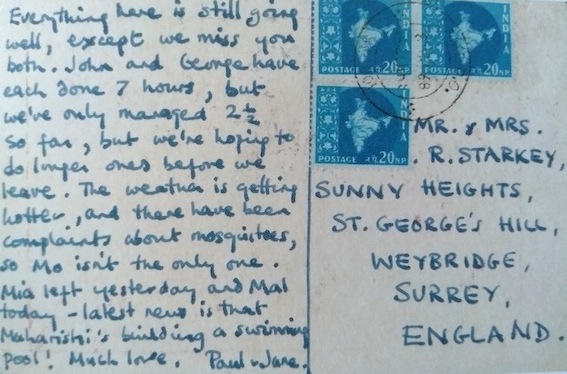 Everything here is still going
well, except we miss you
both. John and George have
each done 7 hours, but
we've only managed 2½
so far, but we're hoping to
do longer ones before we
leave. The weather is getting
hotter, and there have been
complaints about mosquitoes,
so Mo isn't the only one.
Mia left yesterday and Mal
today - latest news is that
Maharishi's building a swimming
pool! Much love. Paul & Jane.
INDIA
POSTAGE 20 NP
INDIA
POSTAGE 20 NP
INDIA
POSTAGE 20 NP
MR. & MRS.
R. STARKEY,
SUNNY HEIGHTS,
ST. GEORGE'S HILL,
WEYBRIDGE,
SURREY,
ENGLAND.